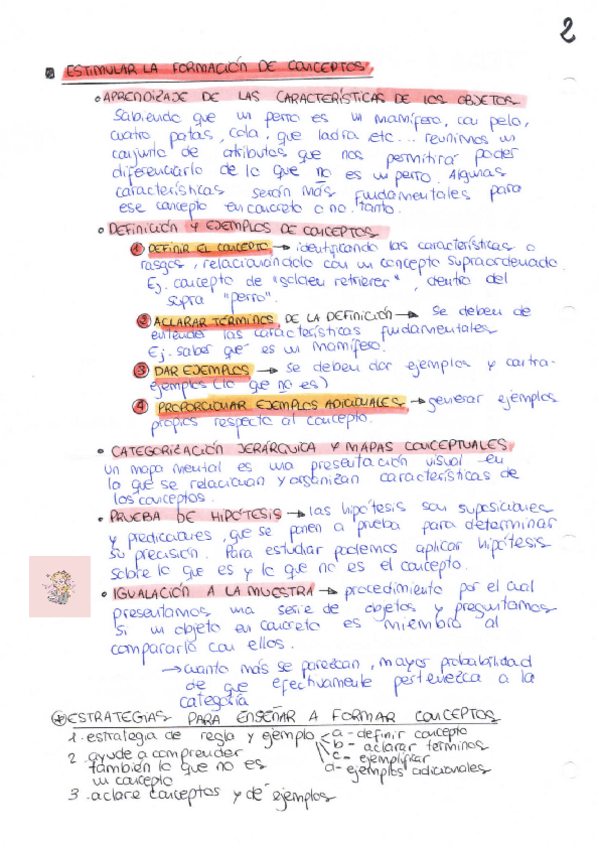 2
ESTIMULAR LA FORMACIÓN DE CONCEPTOS
• APRENDIZAJE DE LAS CARACTERÍSTICAS DE LOS OBJETOS
Sabiendo que un perro es un mamífero, con pelo,
cuatro patas, cola, que ladra etc... reunimos un
conjunto de atributos que nos permitirá poder
diferenciarlo de lo que no es un perro. Algunas
características serán más fundamentales para
ese concepto en concreto o no tanto.
• DEFINICIÓN Y EJEMPLOS DE CONCEPTOS
1 DEFINIR EL CONCEPTO → identificando las características o
rasgos, relacionándolo con un concepto supraordenado.
Ej. concepto de "golden retriever", dentro del
supra "perro".
2 ACLARAR TÉRMINOS DE LA DEFINICIÓN → Se deben de
entender las características fundamentales
Ej. saber qué es un mamífero.
3 DAR EJEMPLOS → se deben dar ejemplos y contra-
ejemplos (lo que no es)
4 PROPORCIONAR EJEMPLOS ADICIONALES → generar ejemplos
propios respecto al concepto.
• CATEGORIZACIÓN JERÁRQUICA Y MAPAS CONCEPTUALES
un mapa mental es una presentación visual en
la que se relacionan y organizan características de
los conceptos.
• PRUEBA DE HIPÓTESIS → las hipótesis son suposiciones
y predicciones, que se ponen a prueba para determinar
su precisión. Para estudiar podemos aplicar hipótesis
sobre lo que es y lo que no es el concepto.
• IGUALACIÓN A LA MUESTRA → procedimiento por el cual
presentamos una serie de objetos y preguntamos
si un objeto en concreto es miembro al
compararlo con ellos.
→ cuanto más se parezcan, mayor probabilidad
de que efectivamente pertenezca a la
categoría
ESTRATEGIAS PARA ENSEÑAR A FORMAR CONCEPTOS
1. estrategia de regla y ejemplo a - definir concepto
b - aclarar términos
c - ejemplificar
d - ejemplos adicionales
2. ayude a comprender
también lo que no es
un concepto
3. aclare conceptos y dé ejemplos